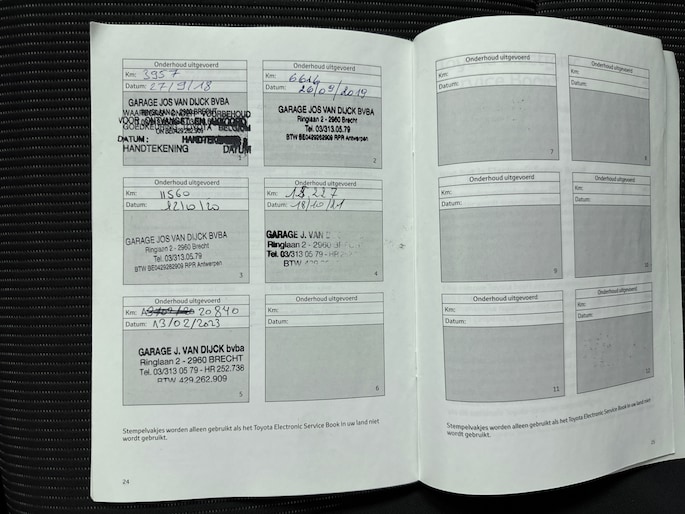 Onderhoud uitgevoerd
Km: 3957
Datum: 27/9/18
GARAGE JOS VAN DIJCK BVBA
DATUM:
HANDTEKENING DATUM
1
Onderhoud uitgevoerd
Km: 6614
Datum: 26/09/2019
GARAGE JOS VAN DIJCK BVBA
Ringlaan 2 - 2960 Brecht
Tel. 03/313.05.79
BTW BE0429262909 RPR Antwerpen
2
Onderhoud uitgevoerd
Km: 11560
Datum:
GARAGE JOS VAN DIJCK BVBA
Ringlaan 2 - 2960 Brecht
Tel. 03/313.05.79
BTW BE0429262909 RPR Antwerpen
3
Onderhoud uitgevoerd
Km: 18.227
Datum: 18/10/21
GARAGE J. VAN
Ringlaan 2 - 2960
Tel. 03/313 05 79 - HR
BTW
4
Onderhoud uitgevoerd
Km: 20840
Datum: 13/02/2023
GARAGE J. VAN DIJCK bvba
Ringlaan 2 - 2960 BRECHT
Tel. 03/313 05 79 - HR 252.736
BTW 429.262.909
5
Onderhoud uitgevoerd
Km:
Datum:
6
Stempelvakjes worden alleen gebruikt als het Toyota Electronic Service Book in uw land niet
wordt gebruikt.
24
Onderhoud uitgevoerd
Km:
Datum:
7
Onderhoud uitgevoerd
Km:
Datum:
8
Onderhoud uitgevoerd
Km:
Datum:
9
Onderhoud uitgevoerd
Km:
Datum:
10
Onderhoud uitgevoerd
Km:
Datum:
11
Onderhoud uitgevoerd
Km:
Datum:
12
Stempelvakjes worden alleen gebruikt als het Toyota Electronic Service Book in uw land niet
wordt gebruikt.
25